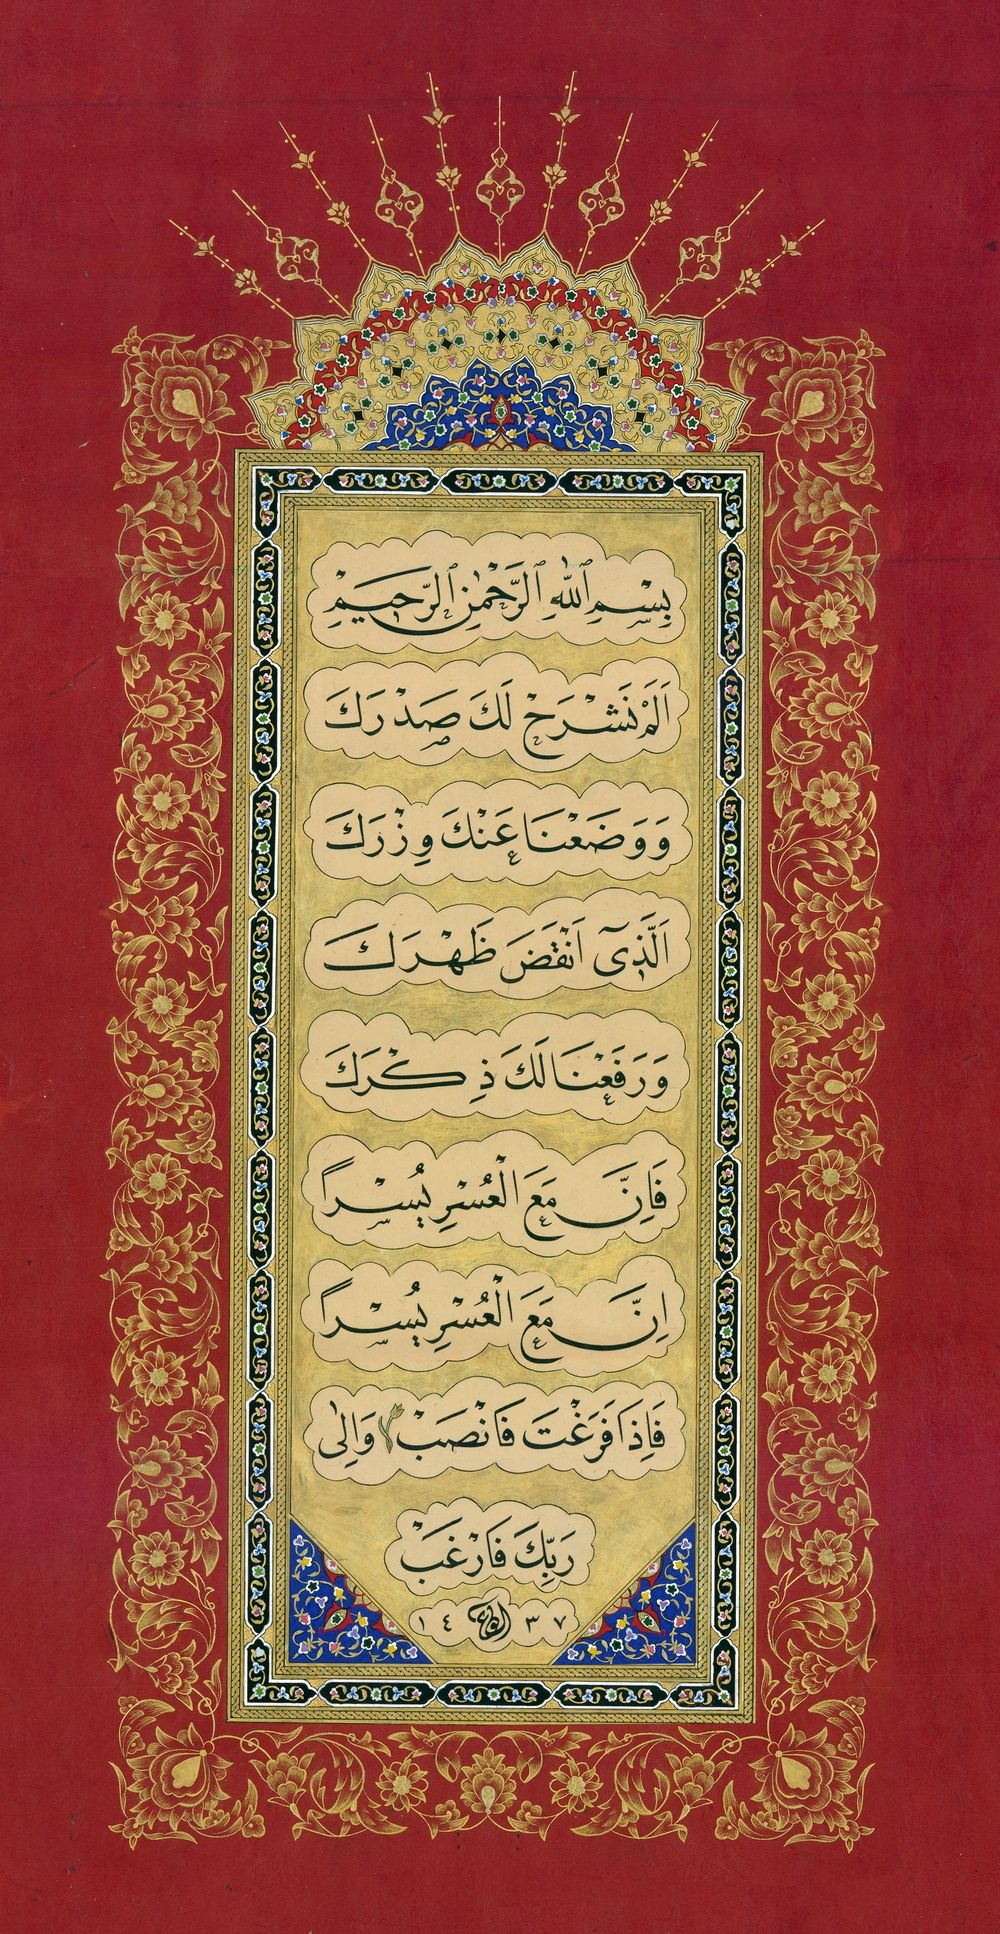 بِسْمِ ٱللّٰهِ ٱلرَّحْمٰنِ ٱلرَّحِيمِ
اَلَمْ نَشْرَحْ لَكَ صَدْرَكَ
وَوَضَعْنَا عَنْكَ وِزْرَكَ
اَلَّذِٓى اَنْقَضَ ظَهْرَكَ
وَرَفَعْنَا لَكَ ذِكْرَكَ
فَاِنَّ مَعَ الْعُسْرِ يُسْراً
اِنَّ مَعَ الْعُسْرِ يُسْراً
فَاِذَا فَرَغْتَ فَانْصَبْ وَاِلٰى
رَبِّكَ فَارْغَبْ
١٤٣٧